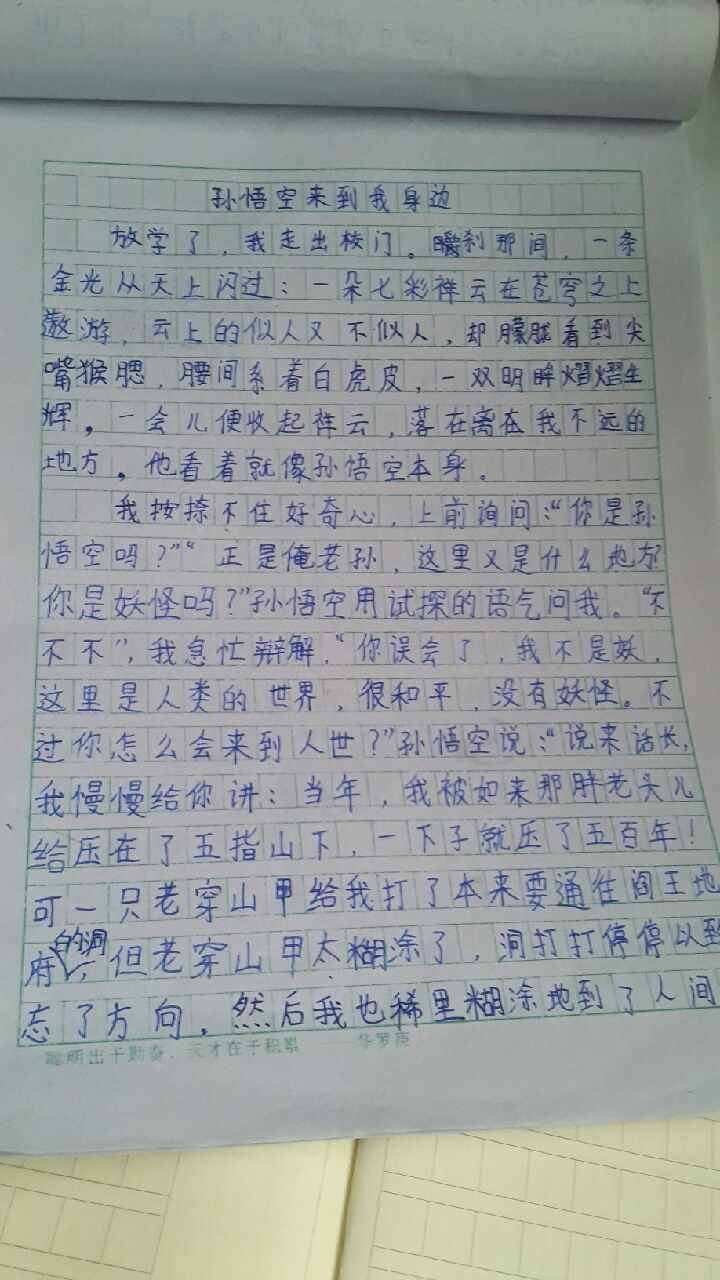 孙悟空来到我身边
放学了，我走出校门。刹那间，一条
金光从天上闪过：一朵七彩祥云在苍穹之上
遨游，云上的似人又不似人，却朦胧看到尖
嘴猴腮，腰间系着白虎皮，一双明眸熠熠生
辉。一会儿便收起祥云，落在离在我不远的
地方。他看着就像孙悟空本身。
我按捺不住好奇心，上前询问：“你是孙
悟空吗？”“正是俺老孙，这里又是什么地方？
你是妖怪吗？”孙悟空用试探的语气问我。“不
不不”，我急忙辩解，“你误会了，我不是妖，
这里是人类的世界，很和平，没有妖怪。不
过你怎么会来到人世？”孙悟空说：“说来话长，
我慢慢给你讲：当年，我被如来那胖老头儿
给压在了五指山下，一下子就压了五百年！
可一只老穿山甲给我打了本来要通往阎王地
府的洞，但老穿山甲太糊涂了，洞打打停停以至
忘了方向，然后我也稀里糊涂地到了人间
聪明出于勤奋，天才在于积累 华罗庚